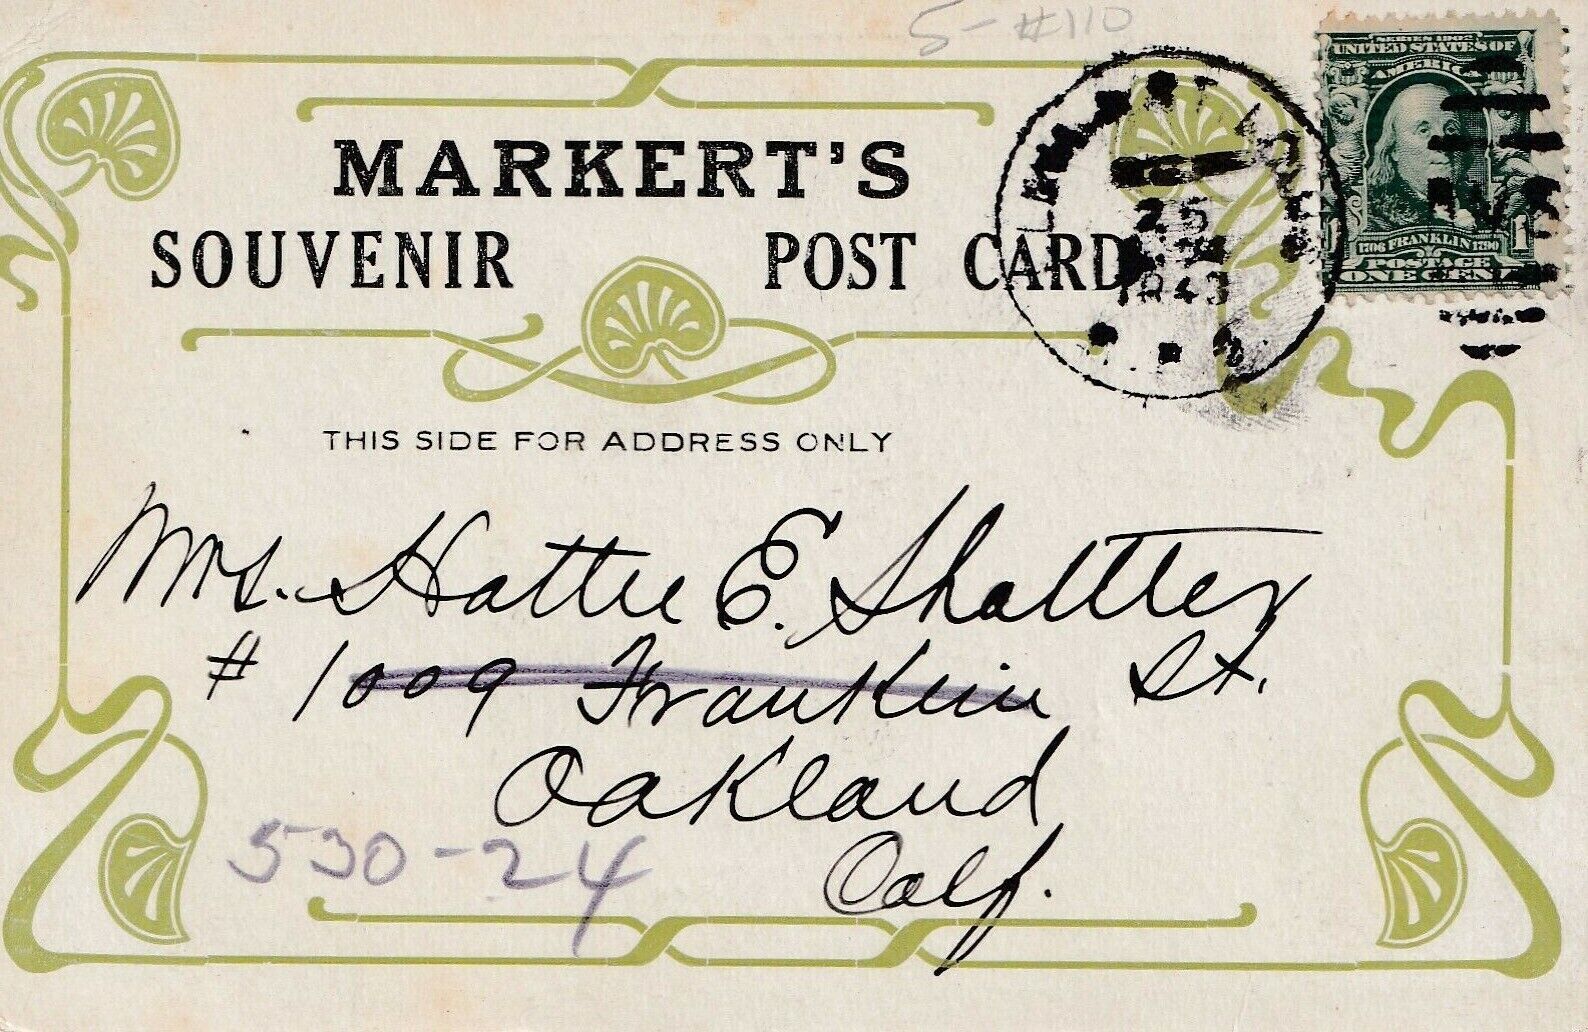 5-#110
SERIES 1902
UNITED STATES OF
AMERICA
1706 FRANKLIN 1790
POSTAGE
ONE CENT
1
MARKERT'S
SOUVENIR POST CARD
25
THIS SIDE FOR ADDRESS ONLY
Mrs. Hattie E. Shattter
# 1009 Franklin St.
Oakland
Calf.
530-24